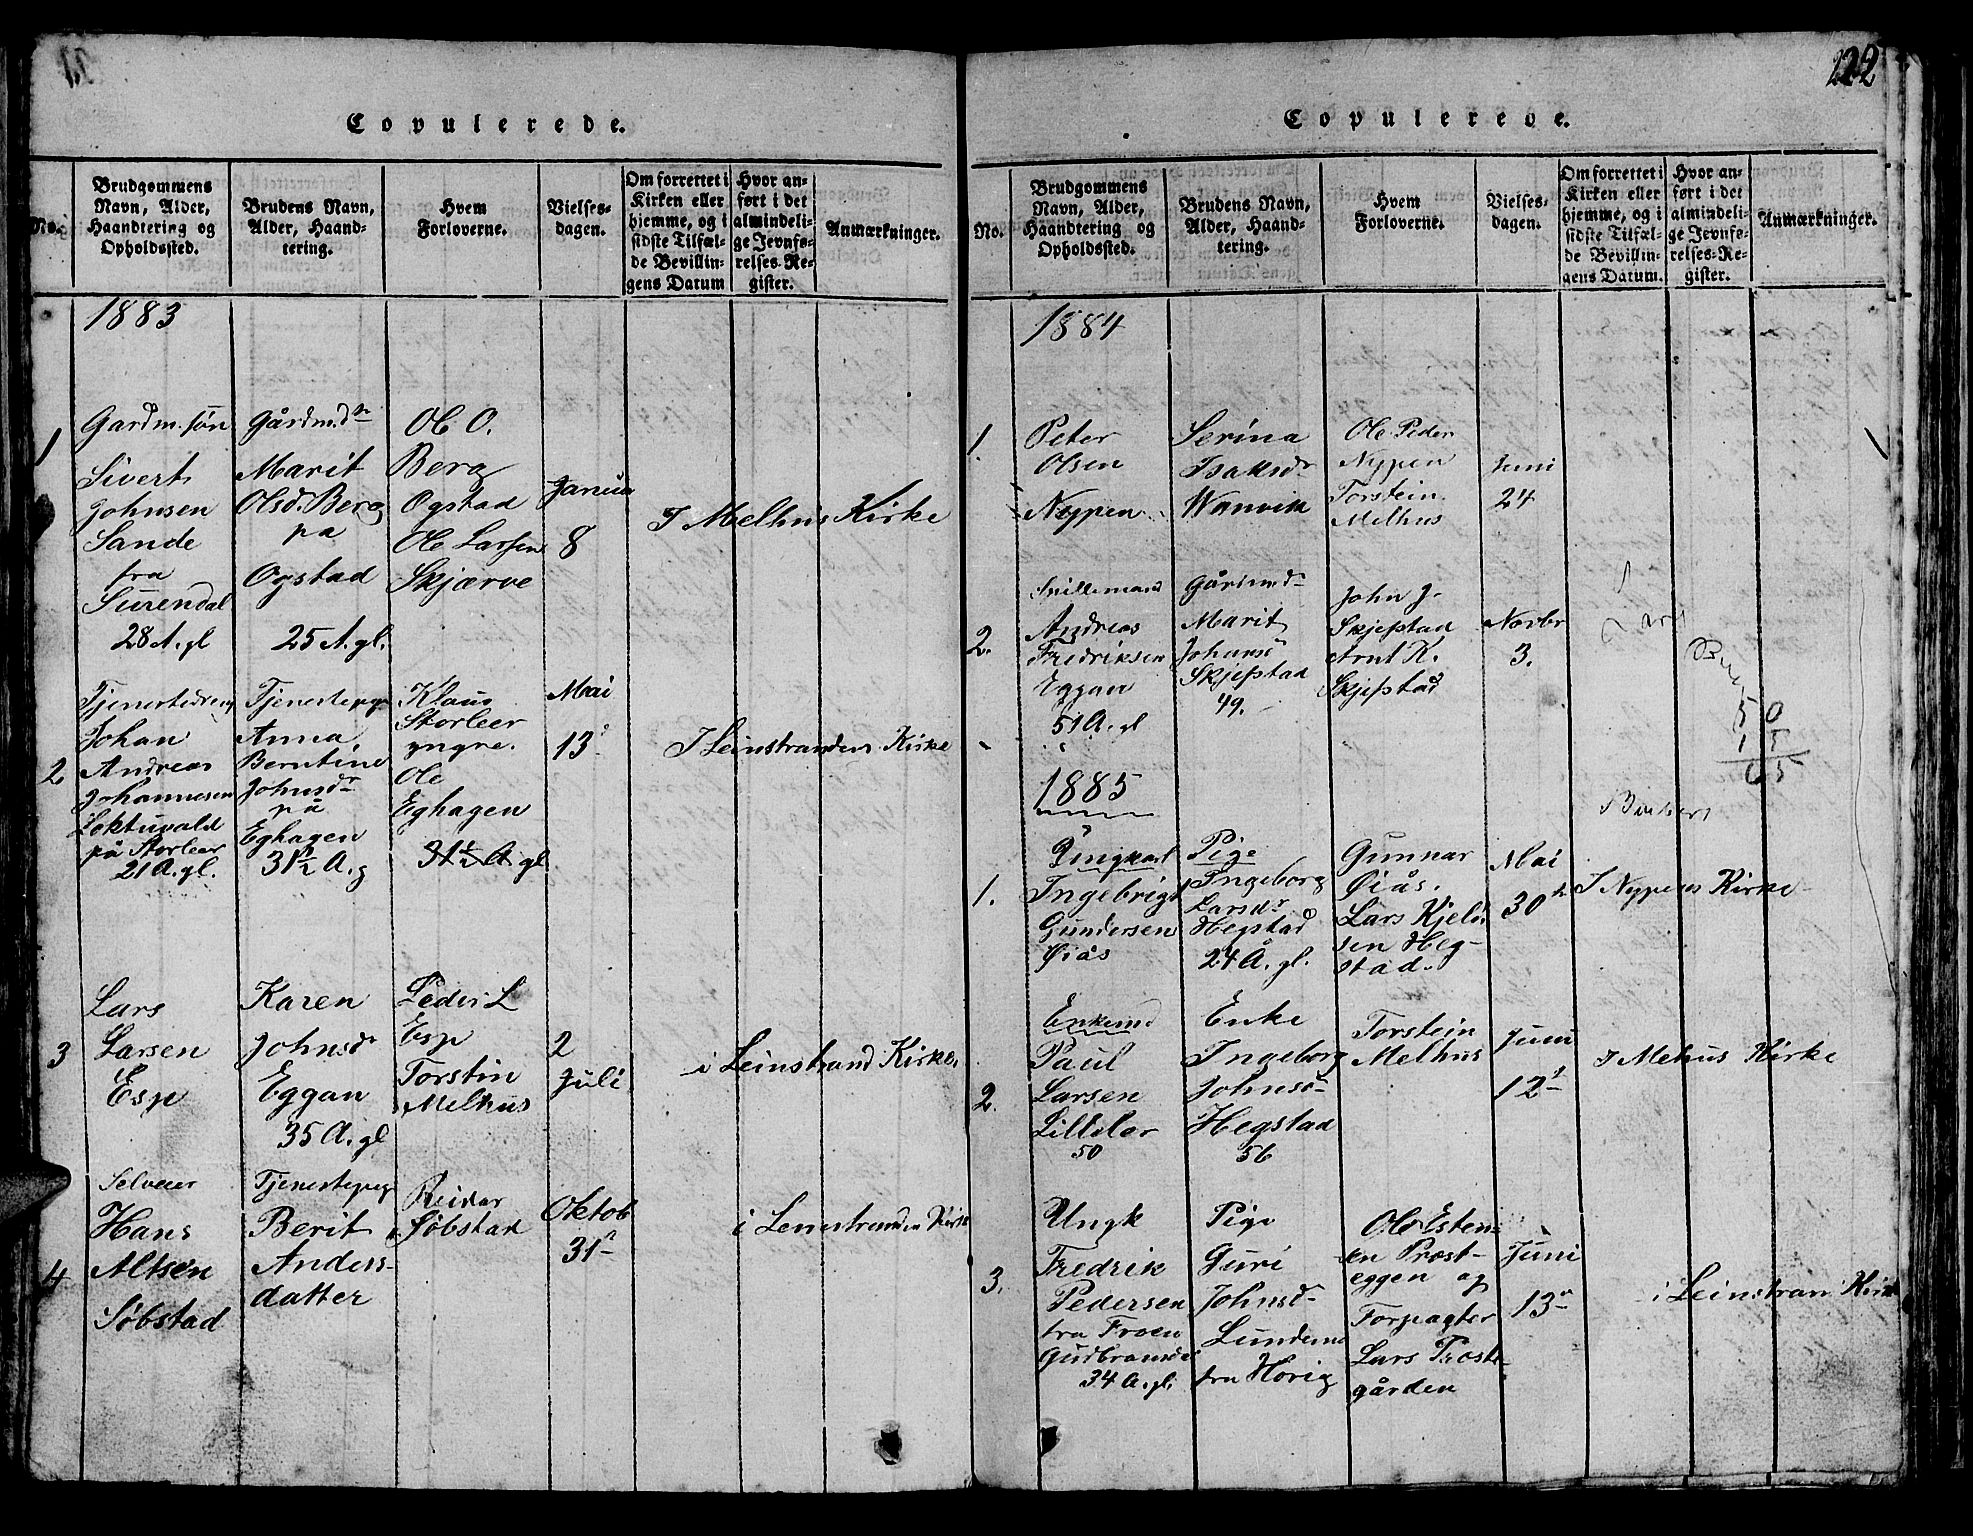 Copulerede.
No.
Brudgommens
Navn, Alder,
Haandtering og
Opholdssted.
Brudens Navn,
Alder, Haand-
tering.
Hvem
Forloverne.
Vielses-
dagen.
Om forrettet i
Kirken eller
hjemme, og i
sidste Tilfæl-
de Bevillin-
gens Datum
Hvor an-
ført i det
almindeli-
ge Jevnfø-
relses-Re-
gister.
Anmærkninger.
1883
1
Gardm. søn
Sivert
Johnsen
Sande
fra
Surendal
28 A. gl
Gårdm.dtr
Marit
Olsd. Berg
pa
Ogstad
25 A. gl.
Ole O.
Berg
Ogstad
Ole Larsen
Skjærve
Januar
8
I Melhus Kirke
2
Tjenestedreng
Johan
Andreas
Johannesen
Loktuvald
på Storleer
21 A. gl.
Tjenestepige
Anna
Berntine
Johnsdr
på
Eghagen
31½ A. g
Klaus
Storleer
yngre.
Ole
Eghagen
31½ A gl
Mai
13
I Leinstrandens Kirke
3
Lars
Larsen
Esp
Karen
Johnsdr
Eggan
35 A. gl
Peder L
Esp
Torstin
Melhus
2
Juli
i Leinstrand Kirke.
4
Selveier
Hans
Altsen
Søbstad
Tjenestepige
Berit
Anders-
datter
Reidar
Søbstad
Oktob
31
i Leinstranden Kirke
222
Copulerede.
No.
Brudgommens
Navn, Alder,
Haandtering og
Opholdssted.
Brudens Navn,
Alder, Haand-
tering.
Hvem
Forloverne.
Vielses-
dagen.
Om forrettet i
Kirken eller
hjemme, og i
sidste Tilfæl-
de Bevillin-
gens Datum.
Hvor an-
ført i det
almindeli-
ge Jevnfø-
relses-Re-
gister.
Anmærkninger.
1884
1.
Peter
Olsen
Nyppen
Serina
Isaksdr
Wanvik
Ole Peder
Nyppen
Torstein
Melhus
Juni
24
2.
Spillemand
Andreas
Fredriksen
Eggan
51 A. gl
Gårdmd
Marit
Johansd
Skjefstad
49.
John J.
Skjefstad
Arnt K.
Skjefstad
Novbr
3.
50
15
65
1885
1.
Ungkarl
Ingebrigt
Gundersen
Øiås
Pige
Ingeborg
Larsdr
Hegstad
24 A. gl.
Gunnar
Øiås.
Lars Kjeld
sen Heg-
stad.
Mai
30te
I Nypens Kirke
2.
Enkemd
Paul
Larsen
Lilleler
50
Enke
Ingeborg
Johnsd
Hegstad
56
Torstein
Melhus
Juni
12
I Mehus Kirke
3.
Ungk
Fredrik
Pedersen
fra Froen
Gudbransdal
34 A. gl.
Pige
Guri
Johnsd
Lundemo
fra Horig
Ole Esten
sen Prøst-
eggen og
Forpagter
Lars Prøste-
gården
Juni
13
i Leinstran Kirke